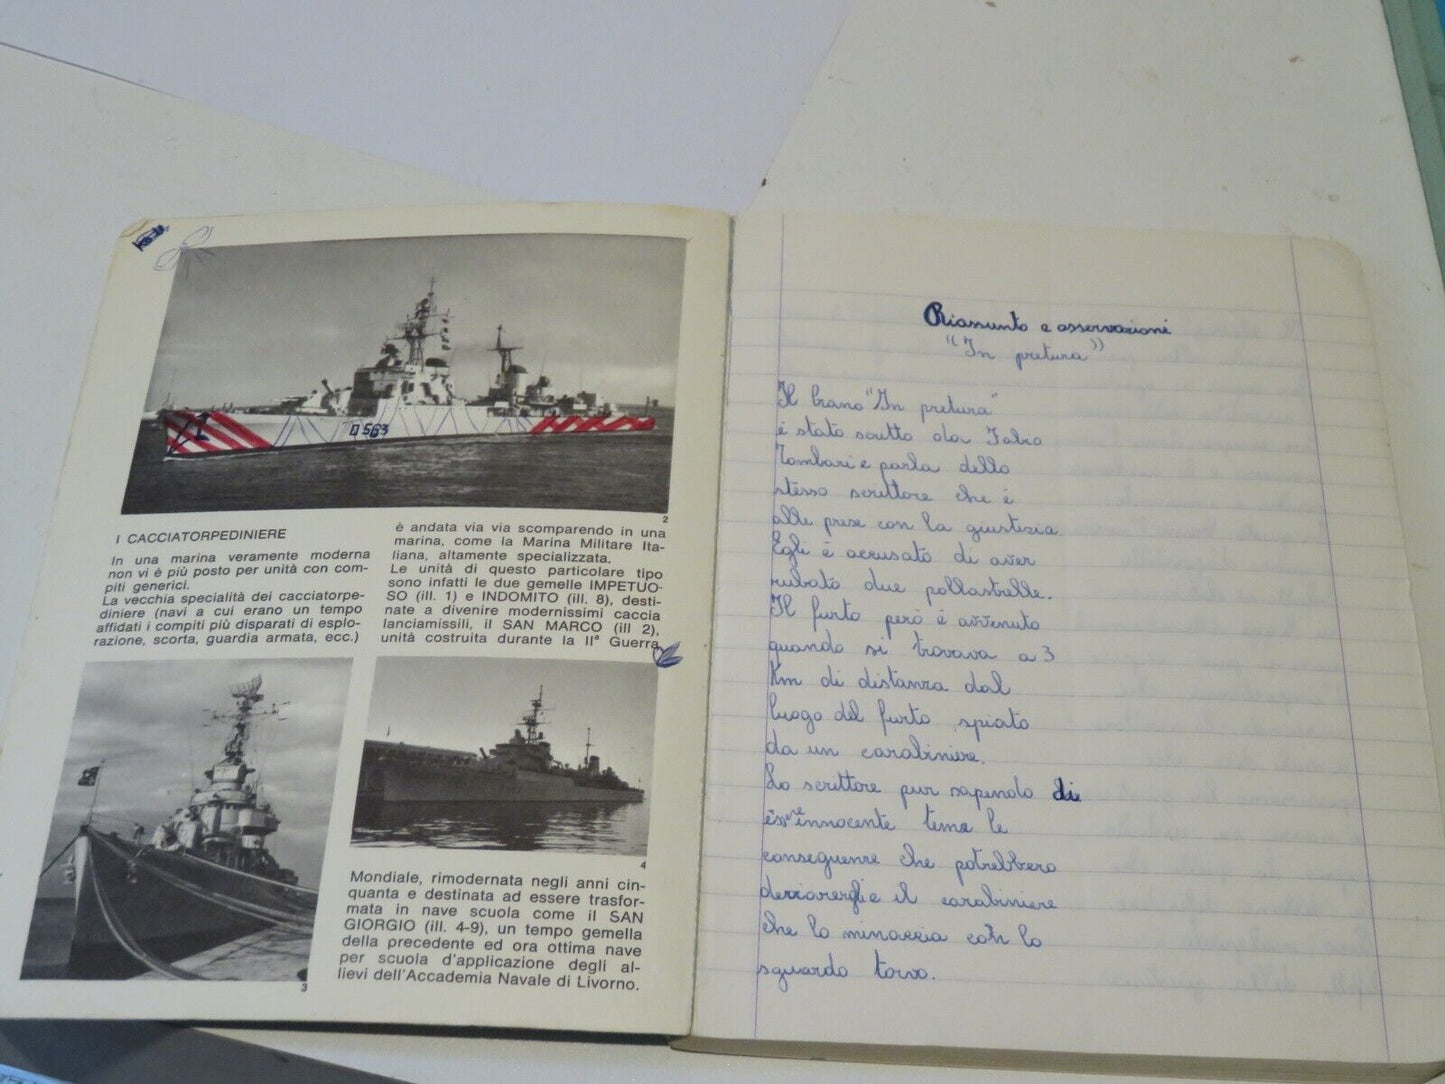 D 563
2
I CACCIATORPEDINIERE
In una marina veramente moderna
non vi è più posto per unità con com-
piti generici.
La vecchia specialità dei cacciatorpe-
diniere (navi a cui erano un tempo
affidati i compiti più disparati di esplo-
razione, scorta, guardia armata, ecc.)
è andata via via scomparendo in una
marina, come la Marina Militare Ita-
liana, altamente specializzata.
Le unità di questo particolare tipo
sono infatti le due gemelle IMPETUO-
SO (ill. 1) e INDOMITO (ill. 8), desti-
nate a divenire modernissimi caccia
lanciamissili, il SAN MARCO (ill 2),
unità costruita durante la IIª Guerra
3
4
Mondiale, rimodernata negli anni cin-
quanta e destinata ad essere trasfor-
mata in nave scuola come il SAN
GIORGIO (ill. 4-9), un tempo gemella
della precedente ed ora ottima nave
per scuola d'applicazione degli al-
lievi dell'Accademia Navale di Livorno.
Riassunto e osservazioni
"In pretura"
Il brano "In pretura"
è stato scritto da Fabio
Tombari e parla dello
stesso scrittore che è
alle prese con la giustizia
Egli è accusato di aver
rubato due pollastrelle.
Il furto però è avvenuto
quando si trovava a 3
Km di distanza dal
luogo del furto spiato
da un carabiniere.
Lo scrittore pur sapendo di
essere innocente teme le
conseguenze che potrebbero
il carabiniere
che lo minaccia con lo
sguardo torvo.